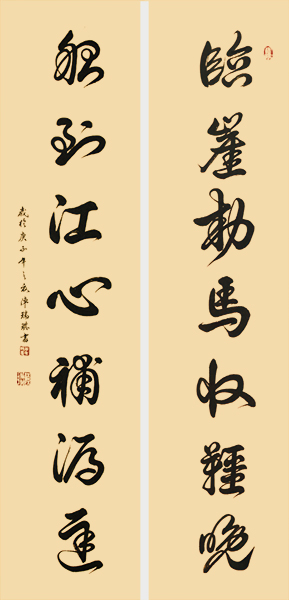 臨崖勒馬收韁晚
船到江心補漏遲
庚子年之